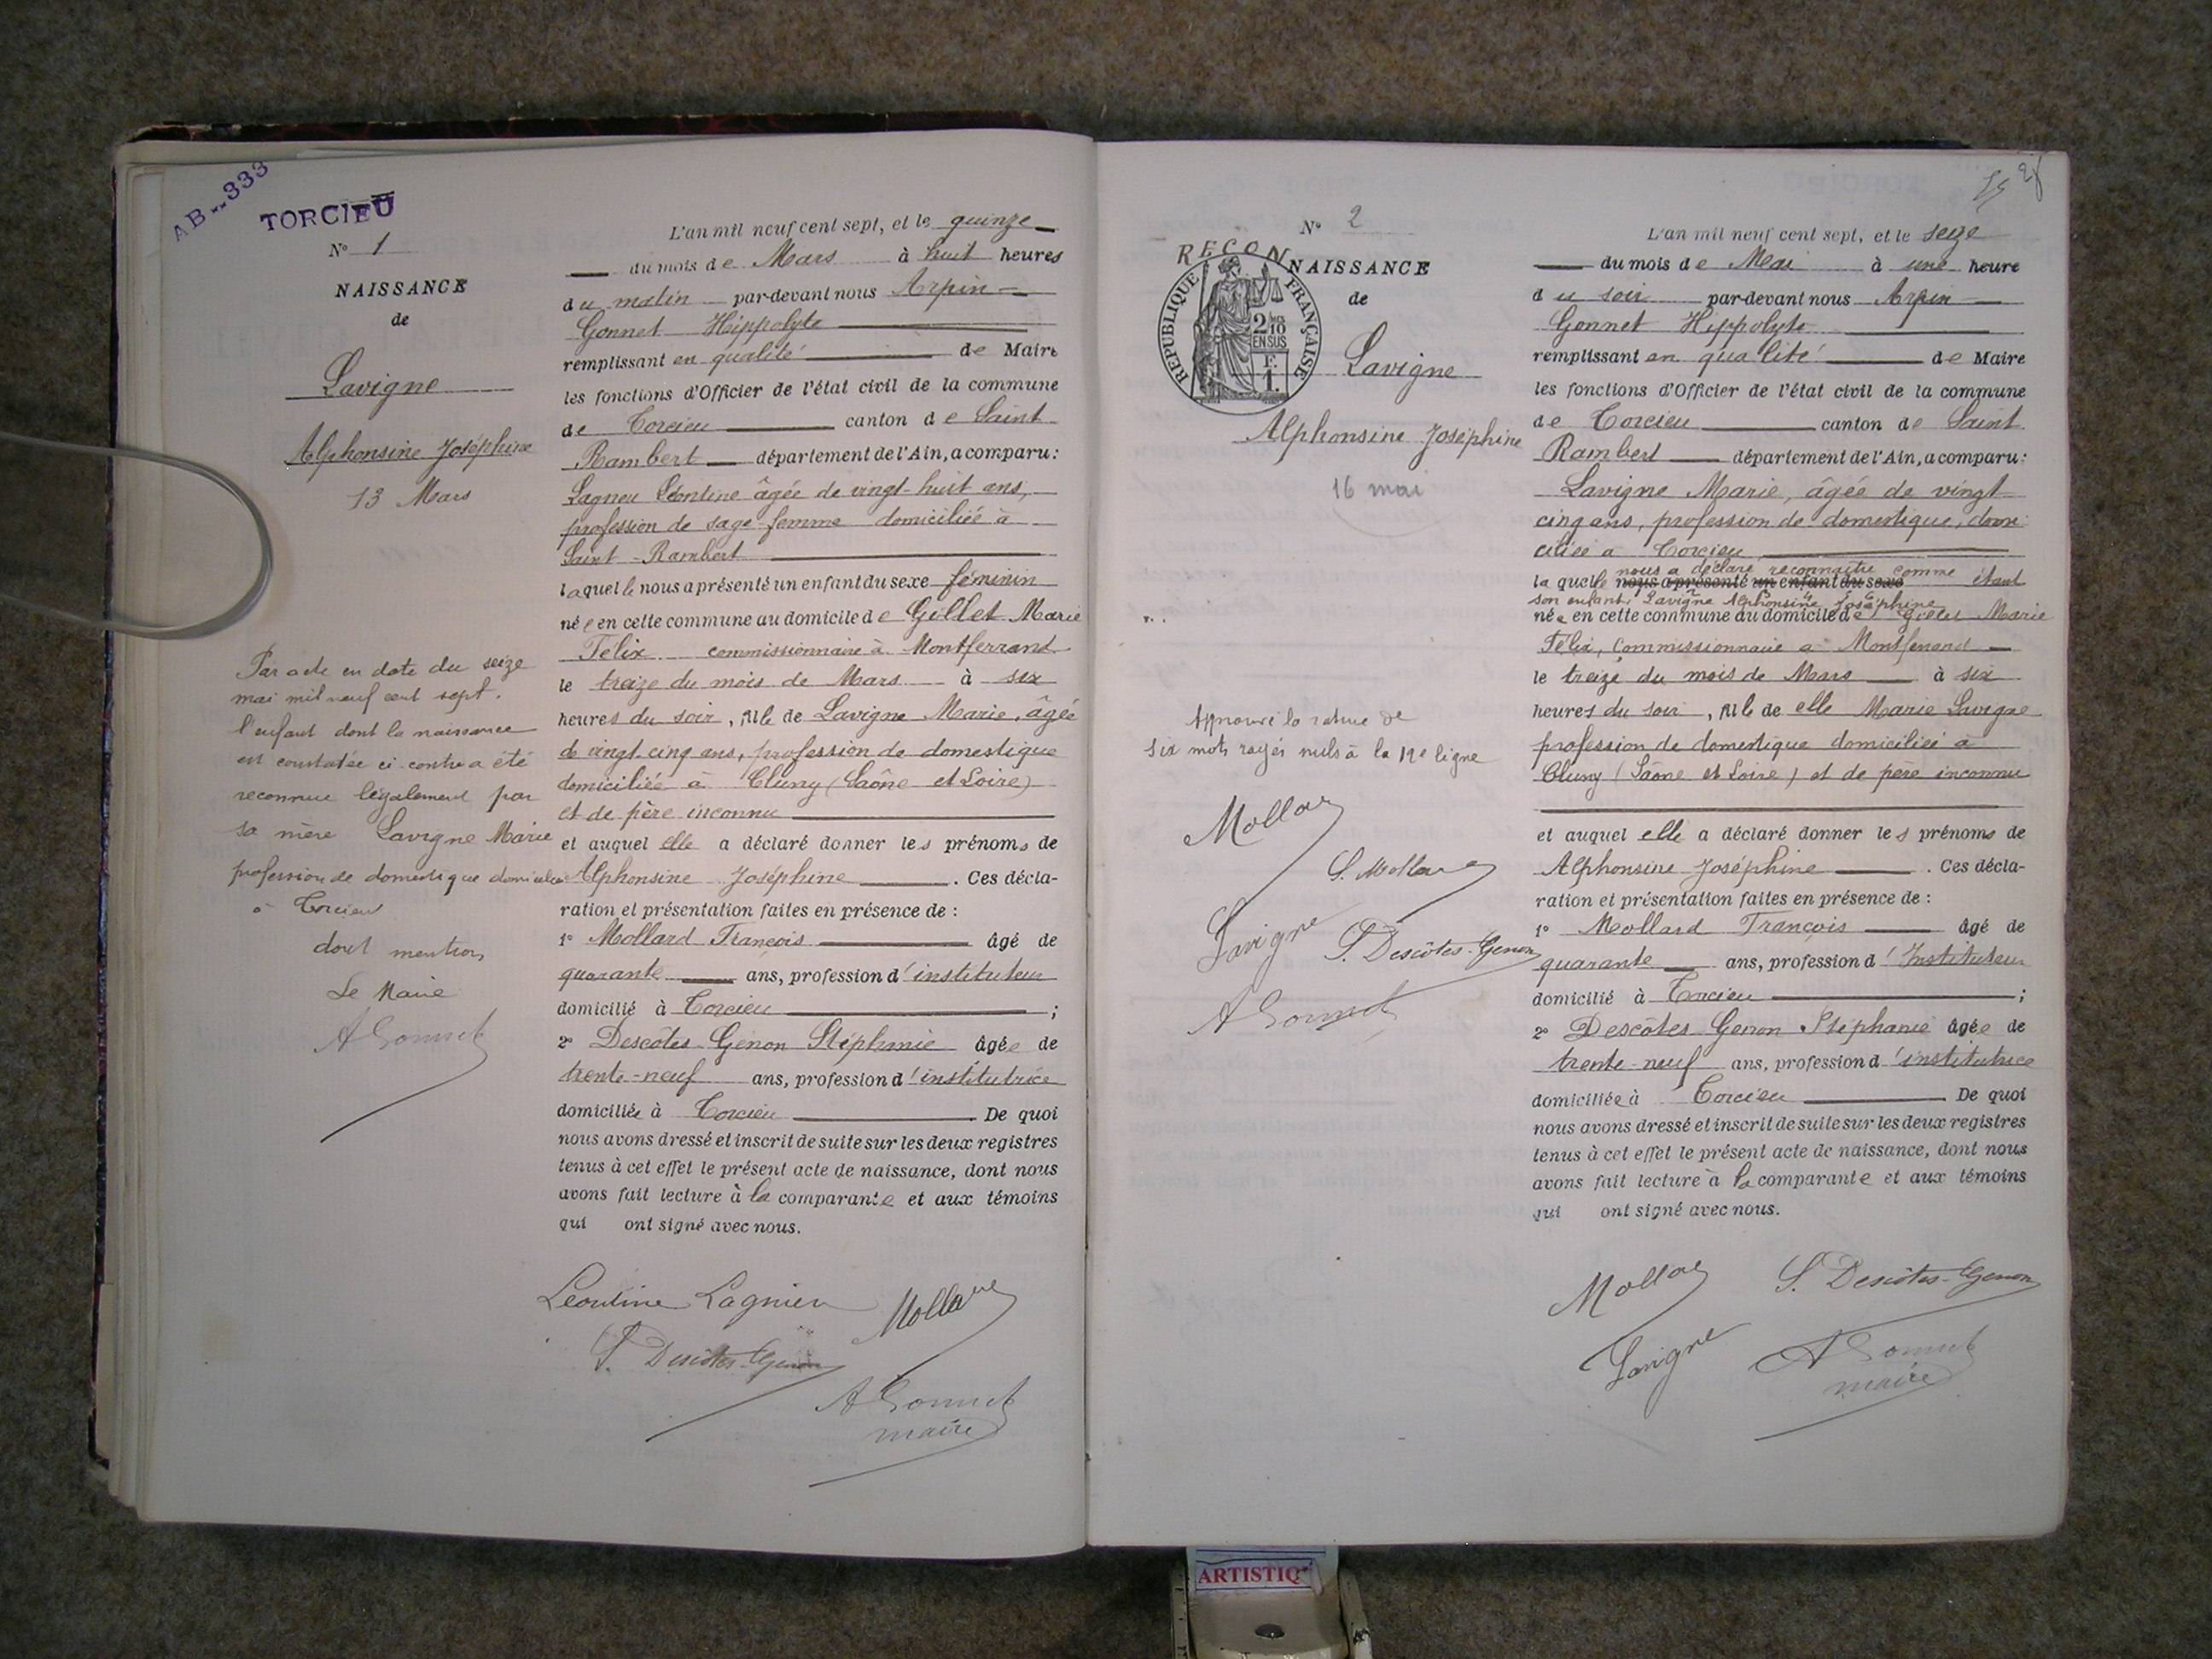 AB--333
TORCIEU
N° 1
NAISSANCE
de
Lavigne
Alphonsine Joséphine
13 Mars
Par acte en date du seize
mai mil neuf cent sept.
l'enfant dont la naissance
est constatée ci-contre a été
reconnue légalement par
sa mère Lavigne Marie
profession de domestique domiciliée
à Torcieu
dont mention
Le Maire
A Gonnet
L'an mil neuf cent sept, et le quinze
du mois de Mars à huit heures
du matin par-devant nous Arpin
Gonnet Hippolyte
remplissant en qualité de Maire
les fonctions d'Officier de l'état civil de la commune
de Torcieu canton de Saint
Rambert département de l'Ain, a comparu :
Lagneu Léontine âgée de vingt-huit ans,
profession de sage-femme domiciliée à
Saint-Rambert
laquelle nous a présenté un enfant du sexe féminin
née en cette commune au domicile de Gillet Marie
Félix commissionnaire à Montferrand
le treize du mois de Mars à six
heures du soir, fille de Lavigne Marie, âgée
de vingt-cinq ans, profession de domestique
domiciliée à Cluny (Saône et Loire)
et de père inconnu
et auquel elle a déclaré donner les prénoms de
Alphonsine Joséphine. Ces décla-
ration et présentation faites en présence de :
1° Mollard François âgé de
quarante ans, profession d'instituteur
domicilié à Torcieu ;
2° Descôtes-Genon Stéphanie âgée de
trente-neuf ans, profession d'institutrice
domiciliée à Torcieu De quoi
nous avons dressé et inscrit de suite sur les deux registres
tenus à cet effet le présent acte de naissance, dont nous
avons fait lecture à la comparante et aux témoins
qui ont signé avec nous.
Léontine Lagnieu Mollard
S. Descôtes-Genon
A Gonnet
maire
N° 2
RECON
NAISSANCE
RÉPUBLIQUE FRANÇAISE
2/10
EN SUS
F.
1.
de
Lavigne
Alphonsine Joséphine
16 mai
Approuvé la rature de
six mots rayés nuls à la 12e ligne
Mollard
S. Mollard
Lavigne
S. Descôtes-Genon
A Gonnet
L'an mil neuf cent sept, et le seize
du mois de Mai à une heure
du soir par-devant nous Arpin
Gonnet Hippolyte
remplissant en qualité de Maire
les fonctions d'Officier de l'état civil de la commune
de Torcieu canton de Saint
Rambert département de l'Ain, a comparu :
Lavigne Marie, âgée de vingt
cinq ans, profession de domestique, domi
ciliée à Torcieu
nous a déclaré reconnaître comme étant
laquelle nous a présenté un enfant du sexe
son enfant Lavigne Alphonsine Joséphine
née en cette commune au domicile de Gillet Marie
Félix, Commissionnaire à Montferrand
le treize du mois de Mars à six
heures du soir, fille de elle Marie Lavigne
profession de domestique domiciliée à
Cluny (Saône et Loire) et de père inconnu
et auquel elle a déclaré donner les prénoms de
Alphonsine Joséphine. Ces décla-
ration et présentation faites en présence de :
1° Mollard François âgé de
quarante ans, profession d'Instituteur
domicilié à Torcieu ;
2° Descôtes-Genon Stéphanie âgée de
trente-neuf ans, profession d'institutrice
domiciliée à Torcieu De quoi
nous avons dressé et inscrit de suite sur les deux registres
tenus à cet effet le présent acte de naissance, dont nous
avons fait lecture à la comparante et aux témoins
qui ont signé avec nous.
Mollard S. Descôtes-Genon
Lavigne A Gonnet
maire
ARTISTIQ